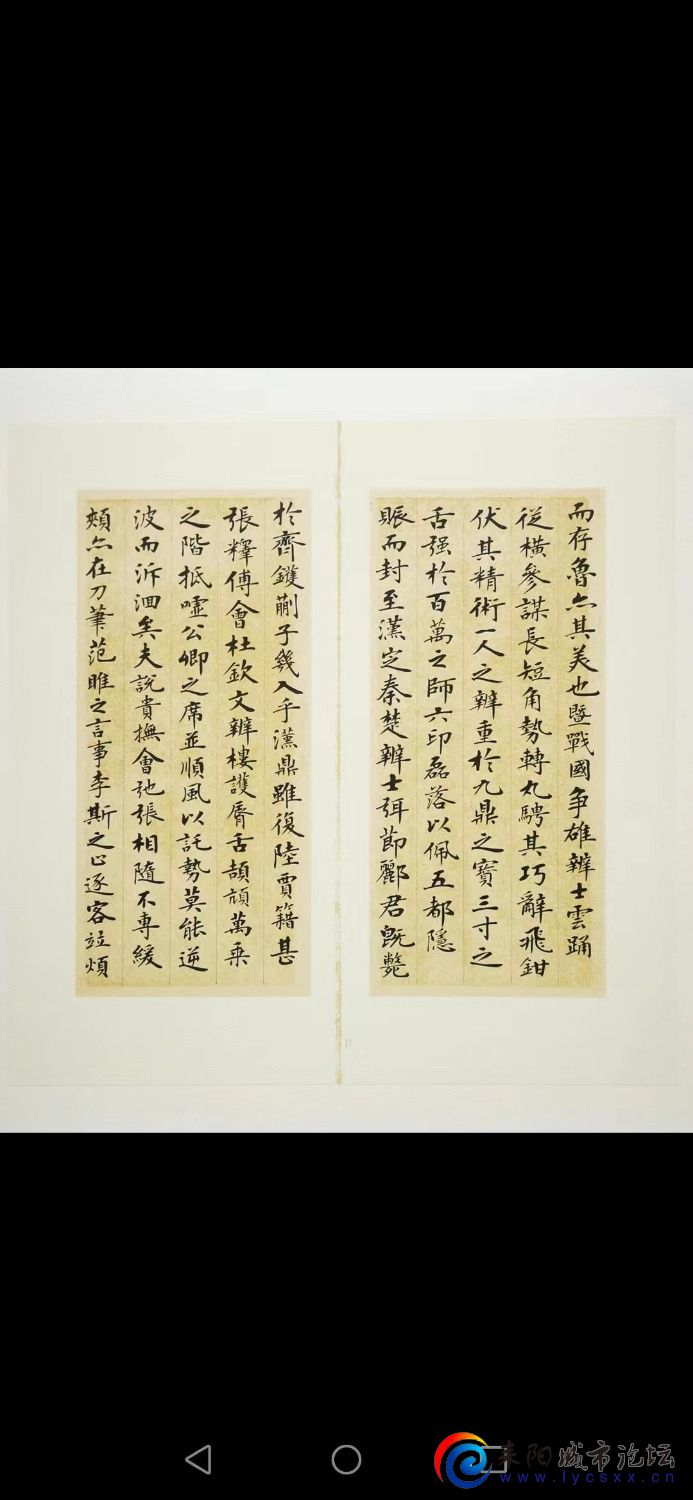 而存魯亦其美也暨戰國争雄辨士雲踊
從橫參謀長短角勢轉丸騁其巧辭飛鉗
伏其精術一人之辨重於九鼎之寶三寸之
舌强於百萬之師六印磊落以佩五都隱
賑而封至漢定秦楚辨士弭節酈君既斃
於齊鑊蒯子幾入乎漢鼎雖復陸賈籍甚
張釋傅會杜欽文辨樓護脣舌頡頏萬乘
之階抵噓公卿之席並順風以託勢莫能逆
波而泝洄矣夫說貴撫會弛張相隨不專緩
頰亦在刀筆范雎之言事李斯之止逐客並煩
耒阳城市论坛
www.lycsxx.cn